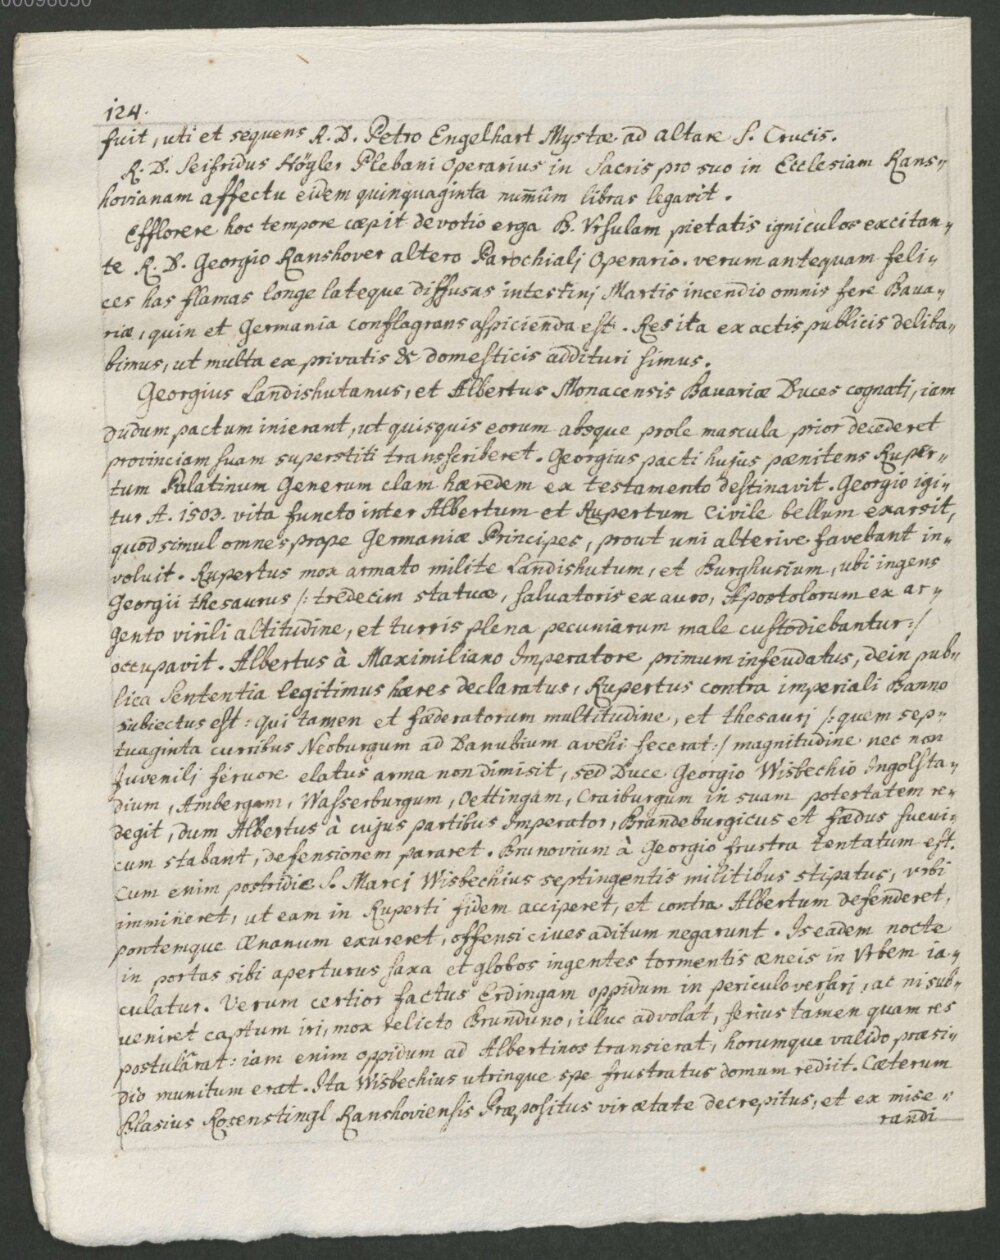 00096050
124.
fuit, uti et sequens R. D. Petro Engelhart Mystæ ad altare S. Crucis.
R. D. Seifridus Högler Plebani Operarius in Sacris pro suo in Ecclesiam Rans„
hovianam affectu eidem quinquaginta num̅um libras legavit.
Efflorere hoc tempore cæpit devotio erga B. Vrsulam pietatis igniculos excitan„
te R. D. Georgio Ranshover altero Parochialj Operario. verum antequam feli„
ces has flamas longe lateque diffusas intestinj Martis incendio omnis fere Bava„
riæ, quin et Germania conflagrans aspicienda est. Res ita ex actis publicis deliba„
bimus, ut multa ex privatis & domesticis addituri simus.
Georgius Landishutanus, et Albertus Monacensis Bavariæ Duces cognati, iam
dudum pactum inierant, ut quisquis eorum absque prole mascula prior decederet
provinciam suam superstiti transscriberet. Georgius pacti hujus pænitens Ruper„
tum Palatinum Generum clam hæredem ex testamento destinavit. Georgio igi„
tur A. 1503. vita functo inter Albertum et Rupertum civile bellum exarsit,
quod simul omnes prope Germaniæ Principes, prout uni alterive favebant in„
voluit. Rupertus mox armato milite Landishutum, et Burghusium, ubi ingens
Georgii thesaurus /: tredecim statuæ, Salvatoris ex auro, Apostolorum ex ar„
gento virili altitudine, et turris plena pecuniarum male custodiebantur :/
occupavit. Albertus à Maximiliano Imperatore primum infeudatus, dein pub„
lica Sententia legitimus hæres declaratus, Rupertus contra imperiali Banno
subiectus est: qui tamen et fæderatorum multitudine, et thesaurj /: quem sep„
tuaginta curribus Neoburgum ad Danubium avehi fecerat :/ magnitudine nec non
Juvenilj fervore elatus arma non dimisit, sed Duce Georgio Wisbechio Ingolsta„
dium, Ambergam, Wasserburgum, Oettingam, Craiburgum in suam potestatem re„
degit, dum Albertus à cujus partibus Imperator, Brandeburgicus et fædus suevi„
cum stabant, defensionem pararet. Brunovium à Georgio frustra tentatum est.
Cum enim postridie S. Marcj Wisbechius septingentis militibus stipatus, vrbi
immineret, ut eam in Ruperti fidem acciperet, et contra Albertum defenderet,
pontemque Ænanum exureret, offensi cives aditum negarunt. Is eadem nocte
in portas sibi aperturus saxa et globos ingentes tormentis æneis in Vrbem ia„
culatur. Verum certior factus Erdingam oppidum in periculo versarj, ac ni sub„
veniret captum iri, mox relicto Brunduno, illuc advolat, serius tamen quam res
postulârat: iam enim oppidum ad Albertinos transierat, horumque valido præsi„
dio munitum erat. Ita Wisbechius utrinque spe frustratus domum rediit. Cæterum
Blasius Rosenstingl Ranshoviensis Præpositus vir ætate decrepitus, et ex mise„
randi